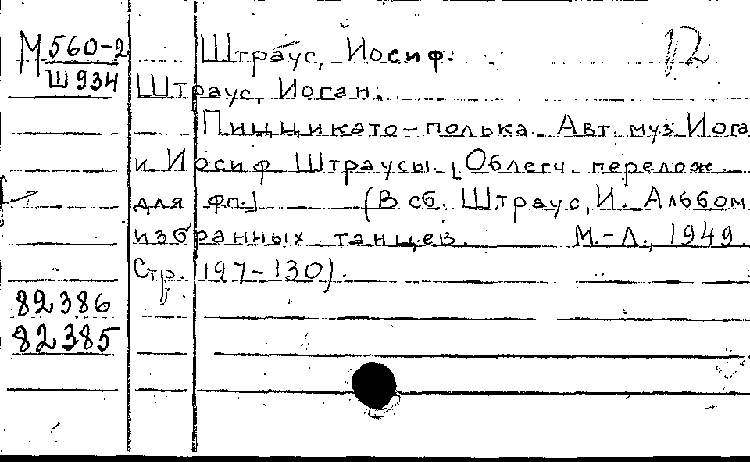 М 560-2
Ш 934
Штраус, Иосиф.
Штраус, Иоган.
Пиццикато-полька. Авт. муз. Иога
и Иосиф Штраусы. [Облегч. перелож.
для фп.] (В сб. Штраус, И. Альбом
избранных танцев. М.-Л., 1949.
Стр. 127-130).
82386
82385